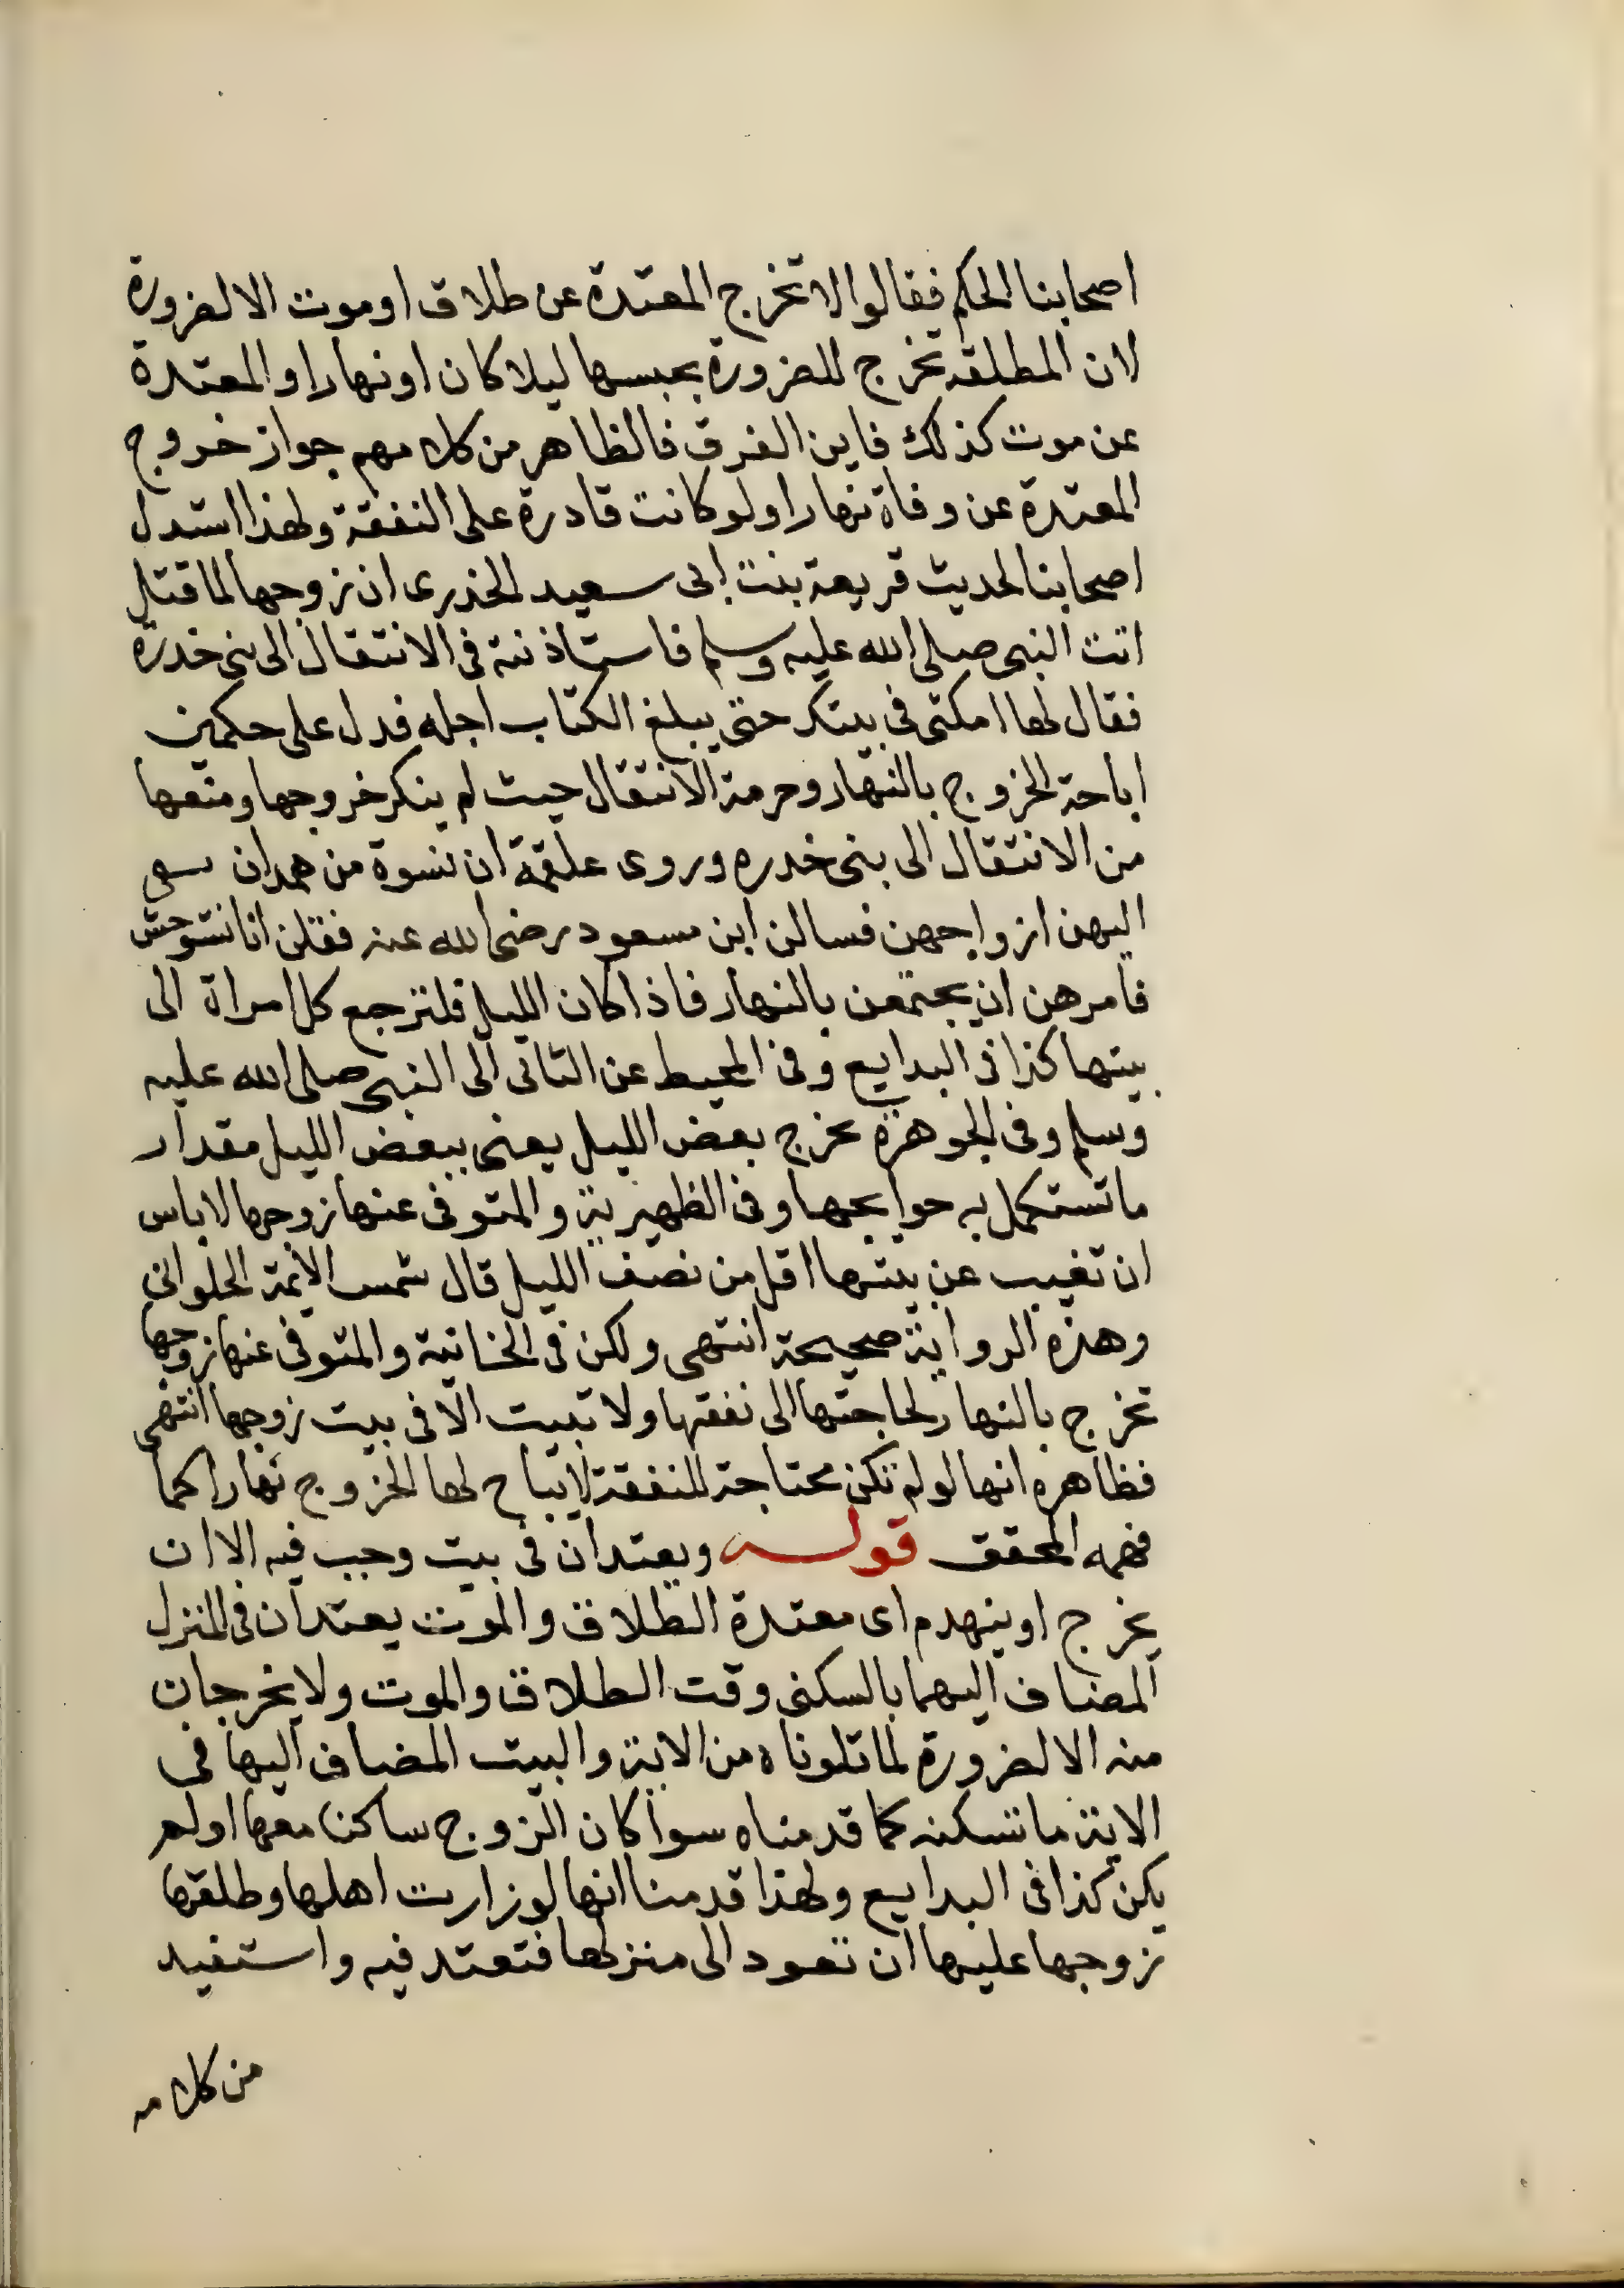 اصحابنا الحكم فقالوا لا تخرج المعتدة عن طلاق او موت الا لضرورة
لان المطلقه تخرج للضرورة بحبسها ليلا كان او نهارا والمعتدة
عن موت كذلك فاين الفرق فالظاهر من كلامهم جواز خروج
المعتدة عن وفاة نهارا ولو كانت قادرة على النفقة ولهذا استدل
اصحابنا لحديث قريعة بنت ابى سعيد الخدرى ان زوجها لما قتل
اتت النبى صلى الله عليه وسلم فاستاذنته فى الانتقال الى بنى خدرة
فقال لها امكثى فى بيتك حتى يبلغ الكتاب اجله فدل على حكمين
اباحة الخروج بالنهار وحرمة الانتقال حيث لم ينكر خروجها ومنعها
من الانتقال الى بنى خدره وروى علقمة ان نسوة من همدان نعى
اليهن ازواجهن فسالن ابن مسعود رضى الله عنه فقلن انا نستوحش
فامرهن ان يجتمعن بالنهار فاذا كان الليل فلترجع كل امراة الى
بيتها كذا فى البدايع وفى المحيط عن الثانى الى النبى صلى الله عليه
وسلم وفى الجوهرة تخرج بعض الليل يعنى ببعض الليل مقدار
ما تستكمل به حوايجها وفى الظهيرية والمتوفى عنها زوجها لا باس
ان تغيب عن بيتها اقل من نصف الليل قال شمس الائمة الحلوانى
وهذه الرواية صحيحة انتهى ولكن فى الخانية والمتوفى عنها زوجها
تخرج بالنهار لحاجتها الى نفقتها ولا تبيت الا فى بيت زوجها انتهى
فظاهره انها لو لم تكن محتاجة للنفقة لا يباح لها الخروج نهارا كما
فهمه المحقق قوله ويعتدان فى بيت وجب فيه الا ان
يخرج او ينهدم اى معتدة الطلاق والموت يعتدان فى المنزل
المضاف اليهما بالسكنى وقت الطلاق والموت ولا يخرجان
منه الا لضرورة لما تلوناه من الاية والبيت المضاف اليها فى
الاية ما تسكنه كما قدمناه سواكان الزوج ساكنا معها اولم
يكن كذا فى البدايع ولهذا قدمنا انها لو زارت اهلها وطلقها
زوجها عليها ان تعود الى منزلها فتعتد فيه واستفيد
من كلامه